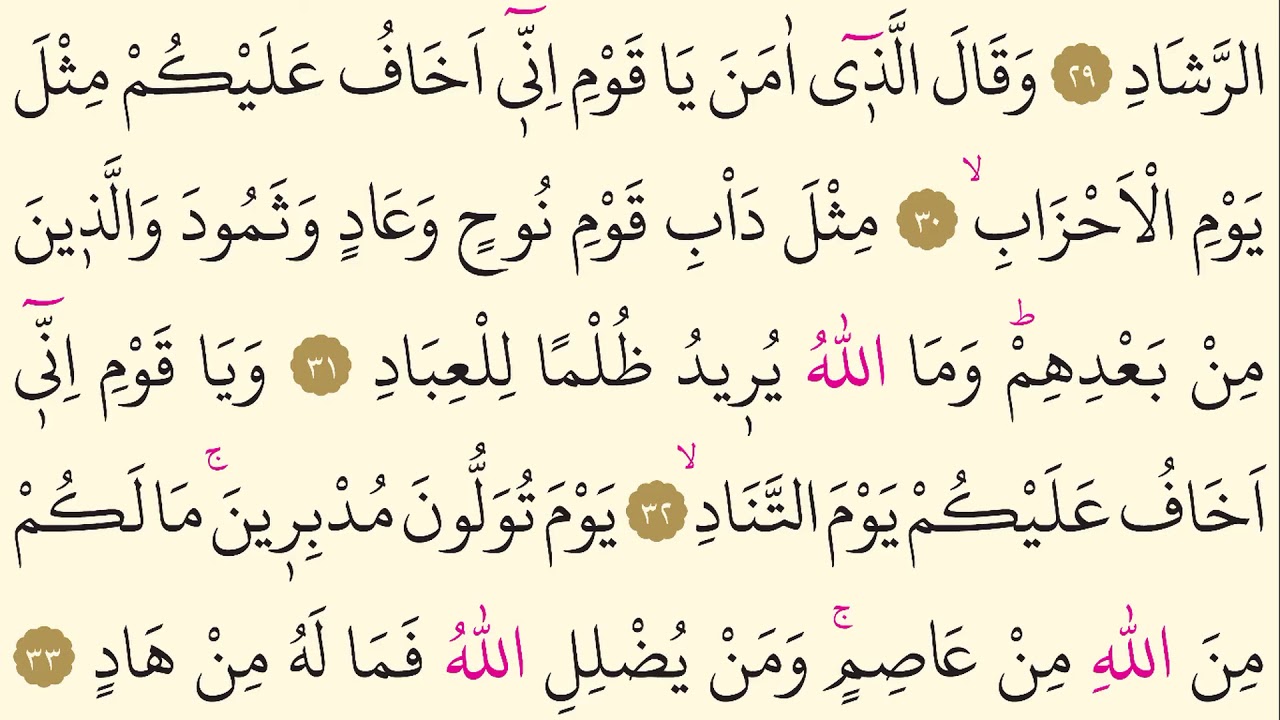 الرَّشَادِ ﴿٢٩﴾ وَقَالَ الَّذٖٓى اٰمَنَ يَا قَوْمِ اِنّٖٓى اَخَافُ عَلَيْكُمْ مِثْلَ
يَوْمِ الْاَحْزَابِۙ ﴿٣٠﴾ مِثْلَ دَاْبِ قَوْمِ نُوحٍ وَعَادٍ وَثَمُودَ وَالَّذٖينَ
مِنْ بَعْدِهِمْؕ وَمَا اللّٰهُ يُرٖيدُ ظُلْمًا لِلْعِبَادِ ﴿٣١﴾ وَيَا قَوْمِ اِنّٖٓى
اَخَافُ عَلَيْكُمْ يَوْمَ التَّنَادِۙ ﴿٣٢﴾ يَوْمَ تُوَلُّونَ مُدْبِرٖينَۚ مَا لَكُمْ
مِنَ اللّٰهِ مِنْ عَاصِمٍۚ وَمَنْ يُضْلِلِ اللّٰهُ فَمَا لَهُ مِنْ هَادٍ ﴿٣٣﴾